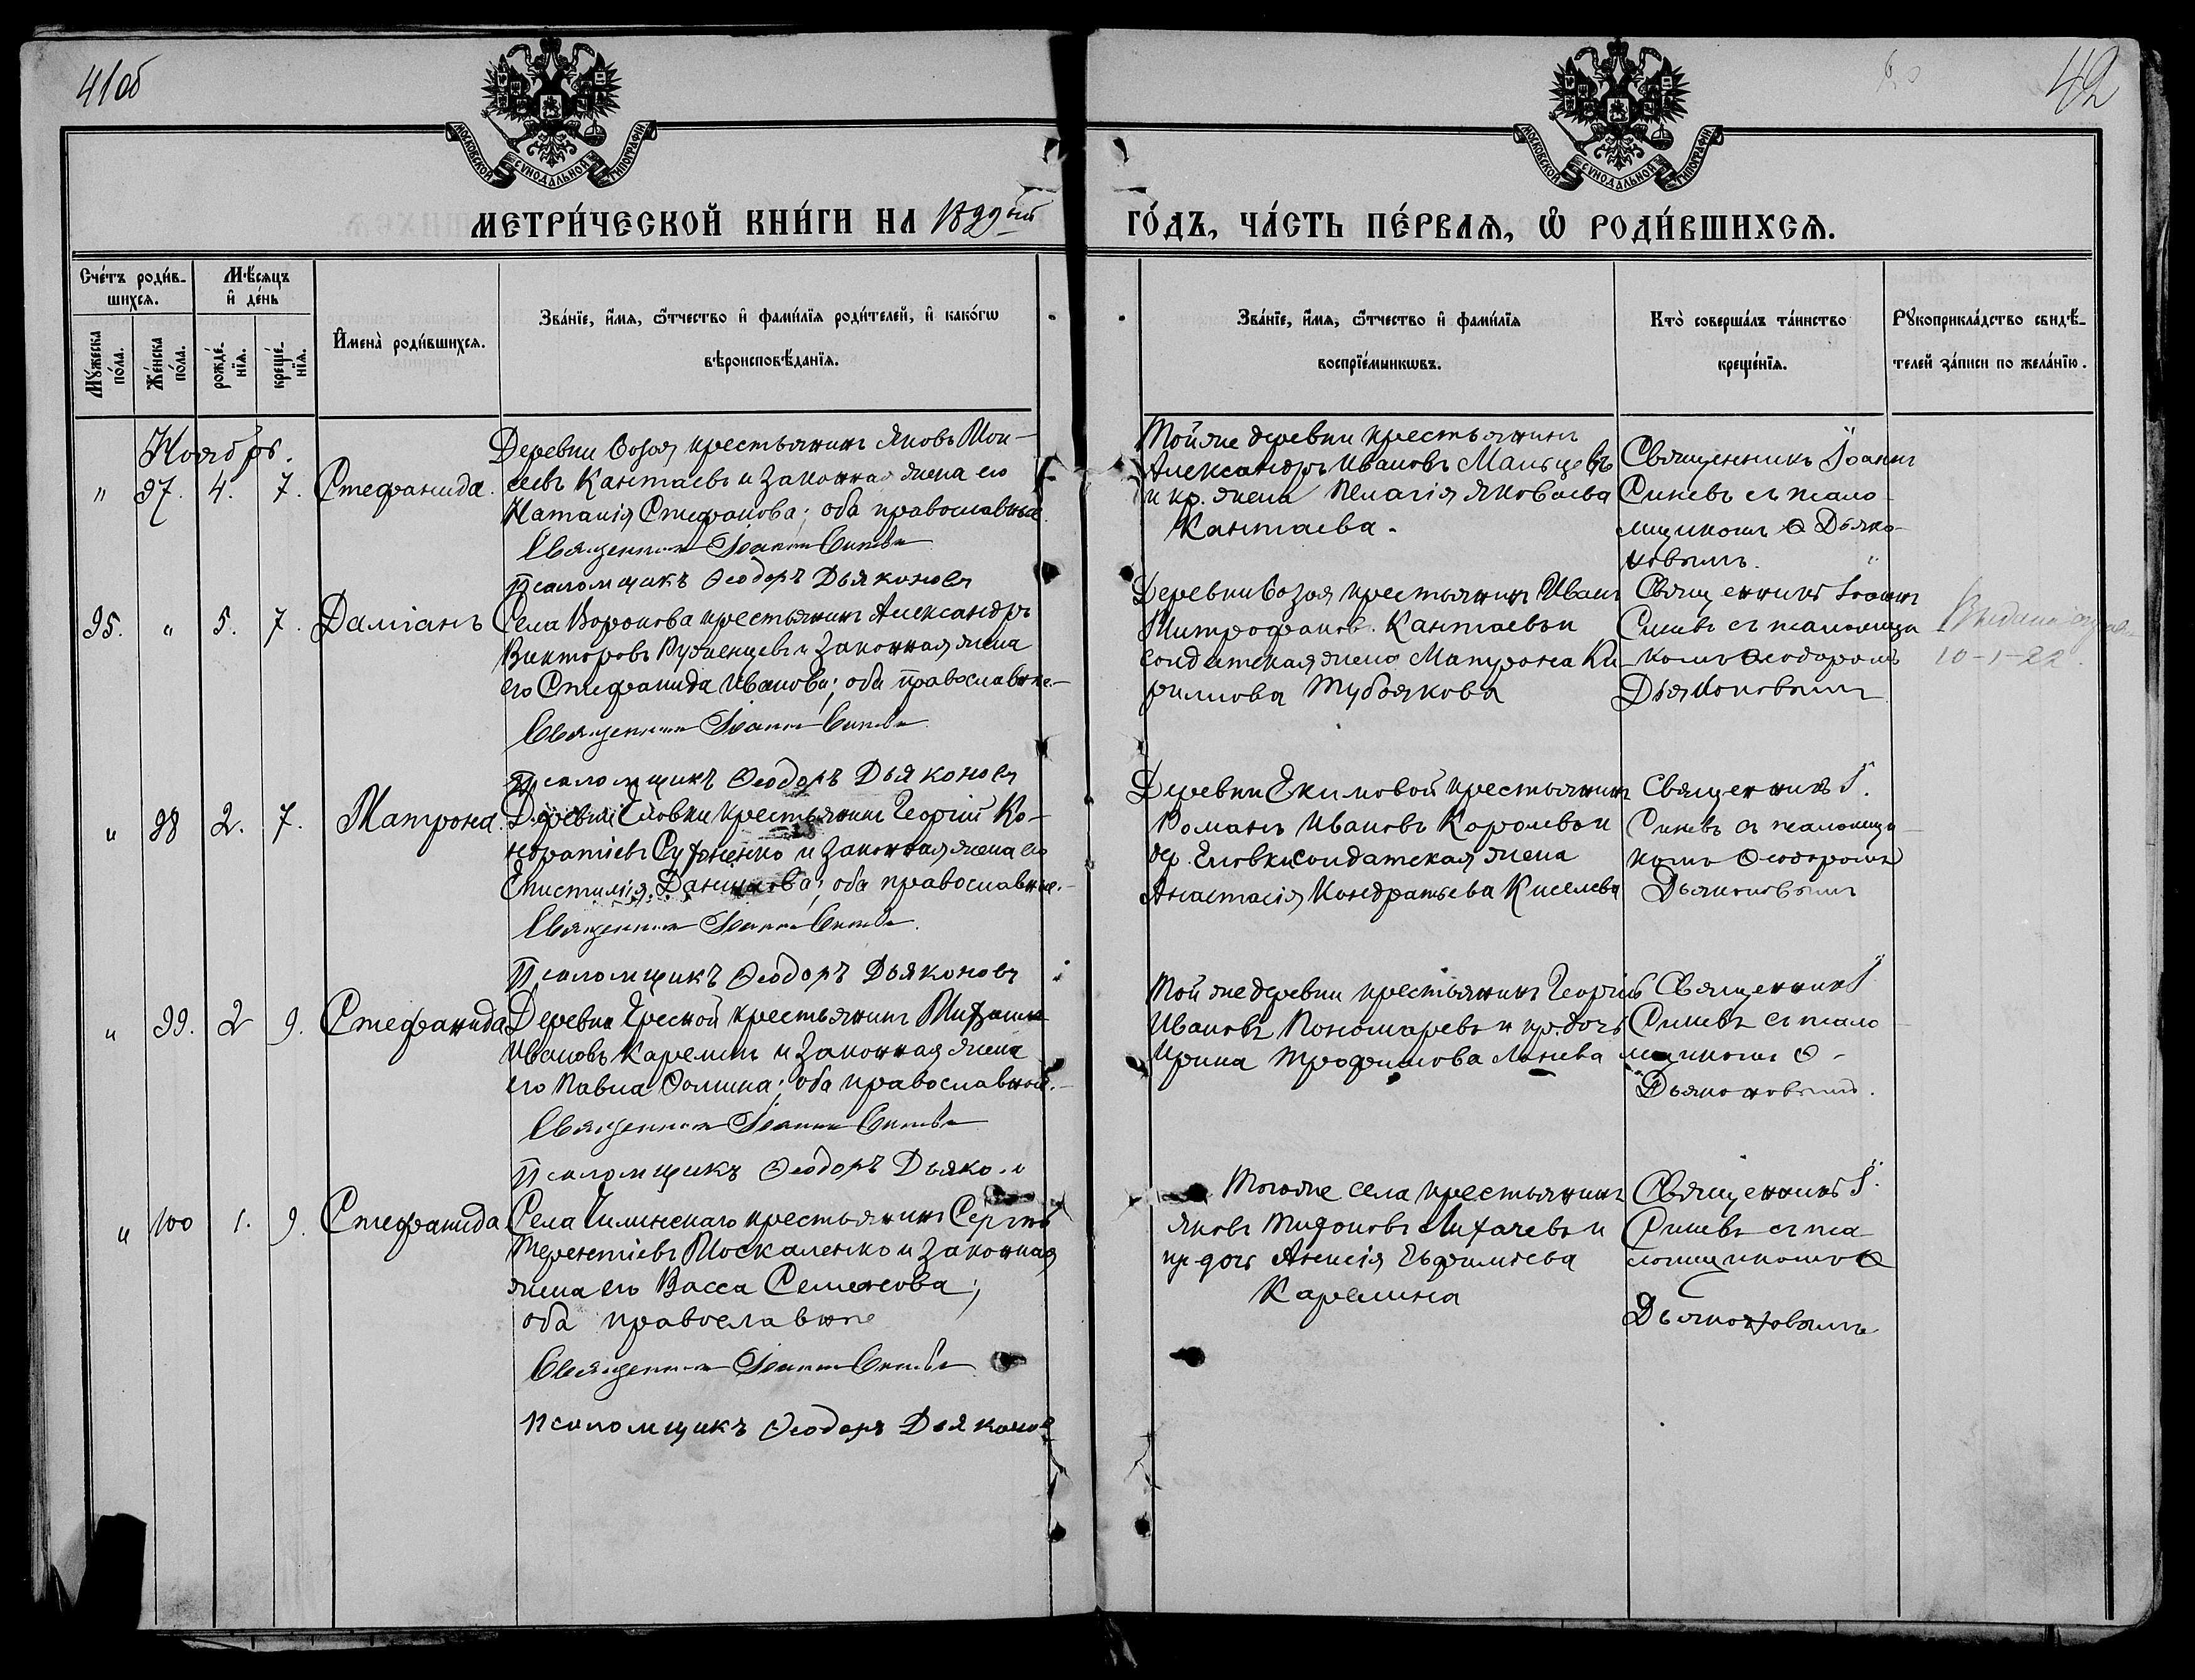 41об
42
МОСКОВСКОЙ СѴНОДАЛЬНОЙ ТИПОГРАФІИ
МОСКОВСКОЙ СѴНОДАЛЬНОЙ ТИПОГРАФІИ
МЕТРИ́ЧЕСКОЙ КНИ́ГИ НА 1899ый ГО́ДЪ, ЧА́СТЬ ПЕ́РВАѦ, Ѽ РОДИ́ВШИХСѦ.
Сче́тъ роди́в-
шихсѧ.
Мꙋ́жеска
по́ла.
Же́нска
по́ла.
Мѣ́сѧцъ
и҆ де́нь
рожде́-
нїѧ.
креще́-
нїѧ.
И҆мена̀ роди́вшихсѧ.
Зва́нїе, и҆́мѧ, ѻ҆́тчество и҆ фами́лїѧ роди́телей, и҆ како́гѡ
вѣроисповѣ́данїѧ.
Зва́нїе, и҆́мѧ, ѻ҆́тчество и҆ фами́лїѧ
воспрїе́мникѡвъ.
Кто̀ соверша́лъ та́инство
креще́нїѧ.
Рꙋкоприкла́дство свидѣ́-
телей за́писи по жела́нїю.
Ноябрь.
" 97. 4. 7. Стефанида.
Деревни Возоя крестьянинъ Яковъ Мои-
сеевъ Кантаевъ и законная жена его
Наталія Стефанова; оба православные
Священникъ Іоаннъ Синевъ
Псаломщикъ Ѳеодоръ Дьяконовъ
Той же деревни крестьянинъ
Александръ Ивановъ Мальцевъ
и кр. жена Пелагія Яковлева
Кантаева.
Священникъ Іоаннъ
Синевъ съ псало-
мщикомъ Ѳ Дьяко-
новымъ.
95. " 5. 7. Даміанъ
Села Воронова крестьянинъ Александръ
Викторовъ и законная жена
его Стефанида Иванова; оба православные.
Священникъ Іоаннъ Синевъ
Псаломщикъ Ѳеодоръ Дьяконовъ
Деревни Возоя крестьянинъ Иванъ
Митрофановъ Кантаевъ и
солдатская жена Матрона Ки-
риллова Тубоякова
Священникъ Іоаннъ
Синевъ съ псаломщи
комъ Ѳеодоромъ
Дьяконовымъ
10-1-22.
" 98 2. 7. Матрона.
Деревни Еловки крестьянинъ Георгій Ко-
ндратіевъ и законная жена его
Епистимія Данилова; оба православные.
Священникъ Іоаннъ Синевъ
Псаломщикъ Ѳеодоръ Дьяконовъ
Деревни Екимовой крестьянинъ
Романъ Ивановъ Королевъ и
дер. Еловки солдатская жена
Анастасія Кондратьева Киселева
Священникъ І.
Синевъ съ псаломщи-
комъ Ѳеодоромъ
Дьяконовымъ
" 99. 2 9. Стефанида
Деревни крестьянинъ Михаилъ
Ивановъ Карелинъ и законная жена
его Павла Ѳомина; оба православные.
Священникъ Іоаннъ Синевъ
Псаломщикъ Ѳеодоръ Дьяко
Той же деревни крестьянинъ Георгій
Ивановъ Пономаревъ и кр. дочь
Ирина Трофимова
Священникъ І
Синевъ съ псало
мщикомъ Ѳ-
Дьяконовымъ.
" 100 1. 9. Стефанида
Села Чилинскаго крестьянинъ Сергій
Терентіевъ Москаленко и законная
жена его Васса Семенова;
оба православные
Священникъ Іоаннъ Синевъ
Псаломщикъ Ѳеодоръ Дьяконов
Того же села крестьянинъ
Яковъ Тихоновъ Лихачевъ и
кр дочь Анисія Евфиміева
Карелина
Священникъ І.
Синевъ съ пса
ломщикомъ Ѳ
Дьяконовымъ